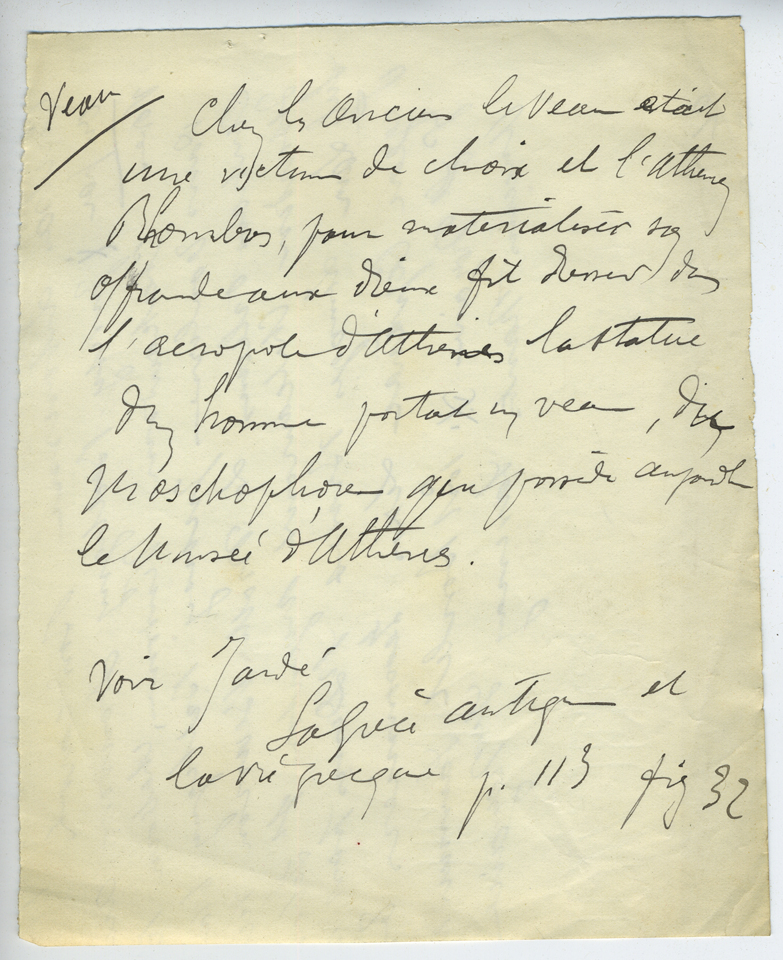 Veau
Chez les Anciens le Veau était
une victime de choix et l'Athénien
Rhombos, pour matérialiser son
offrande aux dieux fit dresser dans
l'acropole d'Athènes la statue
d'un homme portant un veau, dit
Moschophore que possède aujourd'hui
le Musée d'Athènes.
Voir Jardé
La Grèce antique et
la vie grecque p. 113 fig 32